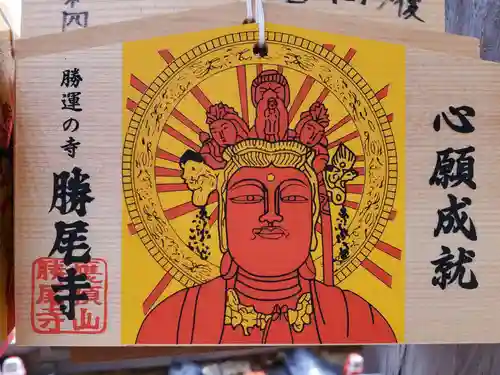 心願成就
勝運の寺
勝尾寺
應頂山
勝尾寺